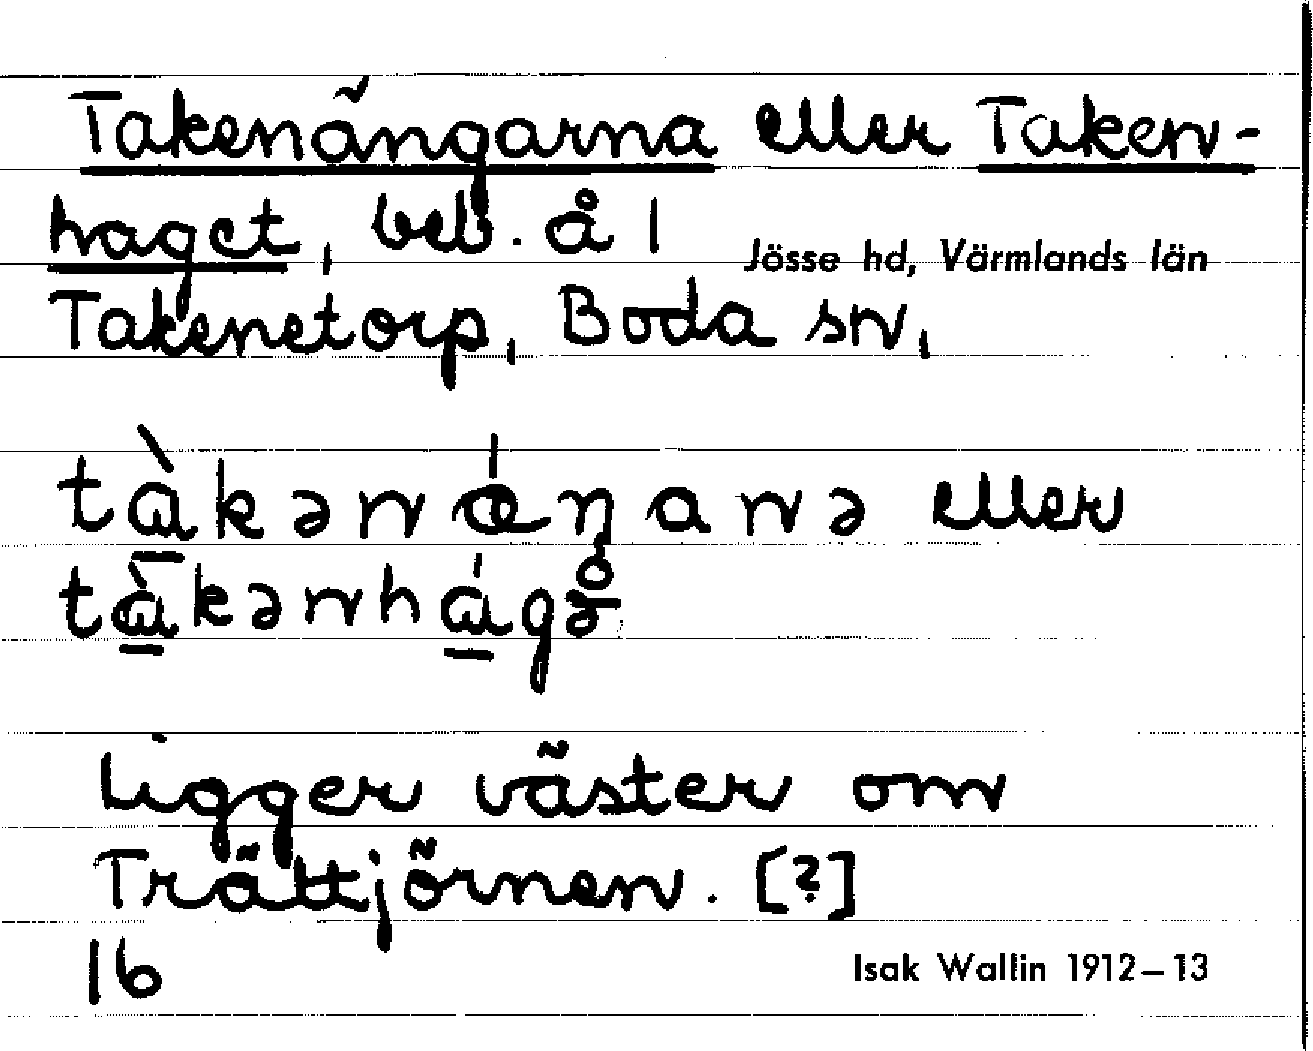 Takenängarna eller Taken-
haget, beb. å 1
Jösse hd, Värmlands län
Takenetorp, Boda sn,
tàkənǽŋanə eller
tàkənhágə̊
Ligger väster om
Trättjörnen. [?]
16
Isak Wallin 1912–13